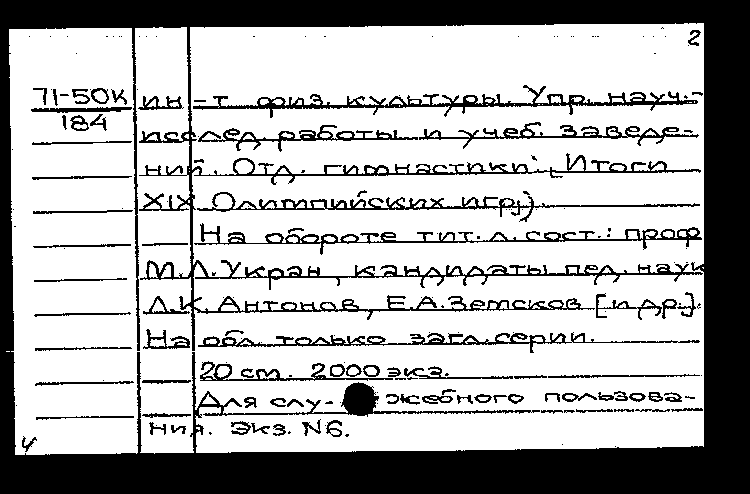 2
71-50К ин-т физ. культуры. Упр. науч.-
184
исслед. работы и учеб. заведе-
ний. Отд. гимнастики; [Итоги
XIX Олимпийских игр]).
На обороте тит. л. сост.: проф
М.Л. Укран, кандидаты пед. наук
Л.К. Антонов, Е.А. Земсков [и др.].
На обл. только загл. серии.
20 см. 2000 экз.
Для слу- жебного пользова-
ния. Экз. N6.
4